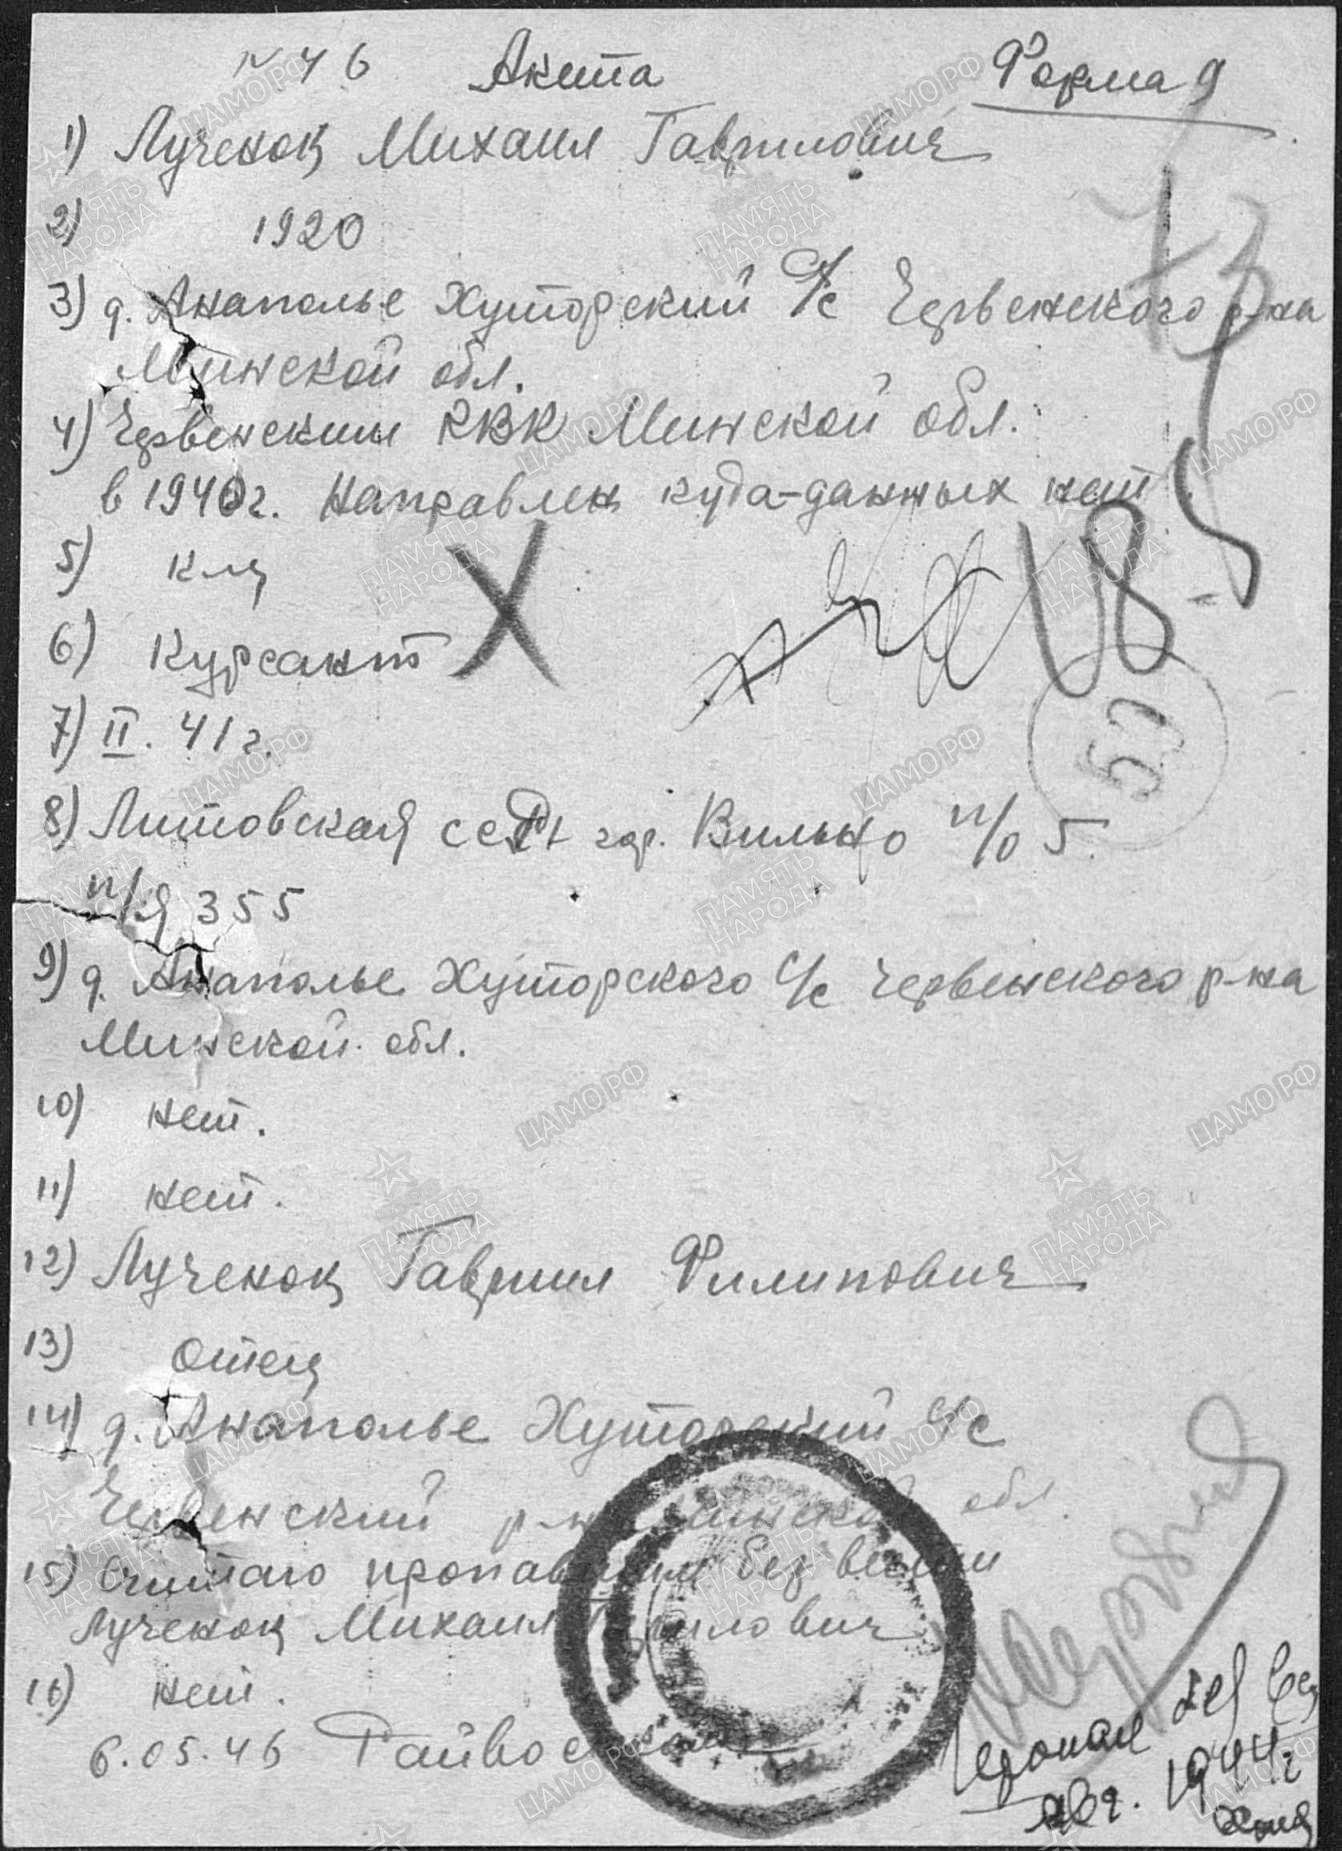 № 46 Анкета Форма 9
1) Лученок Михаил Гаврилович
2) 1920
3) д. Анаполье Хуторский С/с Червенского р-на
Минской обл.
4) Червенским РВК Минской обл.
в 1940г. Направлен куда-данных нет
5) к-ц
6) Курсант
7) II. 41г.
8) Литовская ССР гор. Вильно п/о 5.
п/я 355
9) д. Анаполье Хуторского С/с Червенского р-на
Минской обл.
10) нет.
11) нет.
12) Лученок Гавриил Филипович
13) отец
14) д. Анаполье Хуторский С/с
Червенский р-н Минской обл.
15) Считаю пропавшим без вести
Лученок Михаил Гаврилович
16) нет.
6.05.46 Райвоенком
Пропал без вес
авг. 1944г